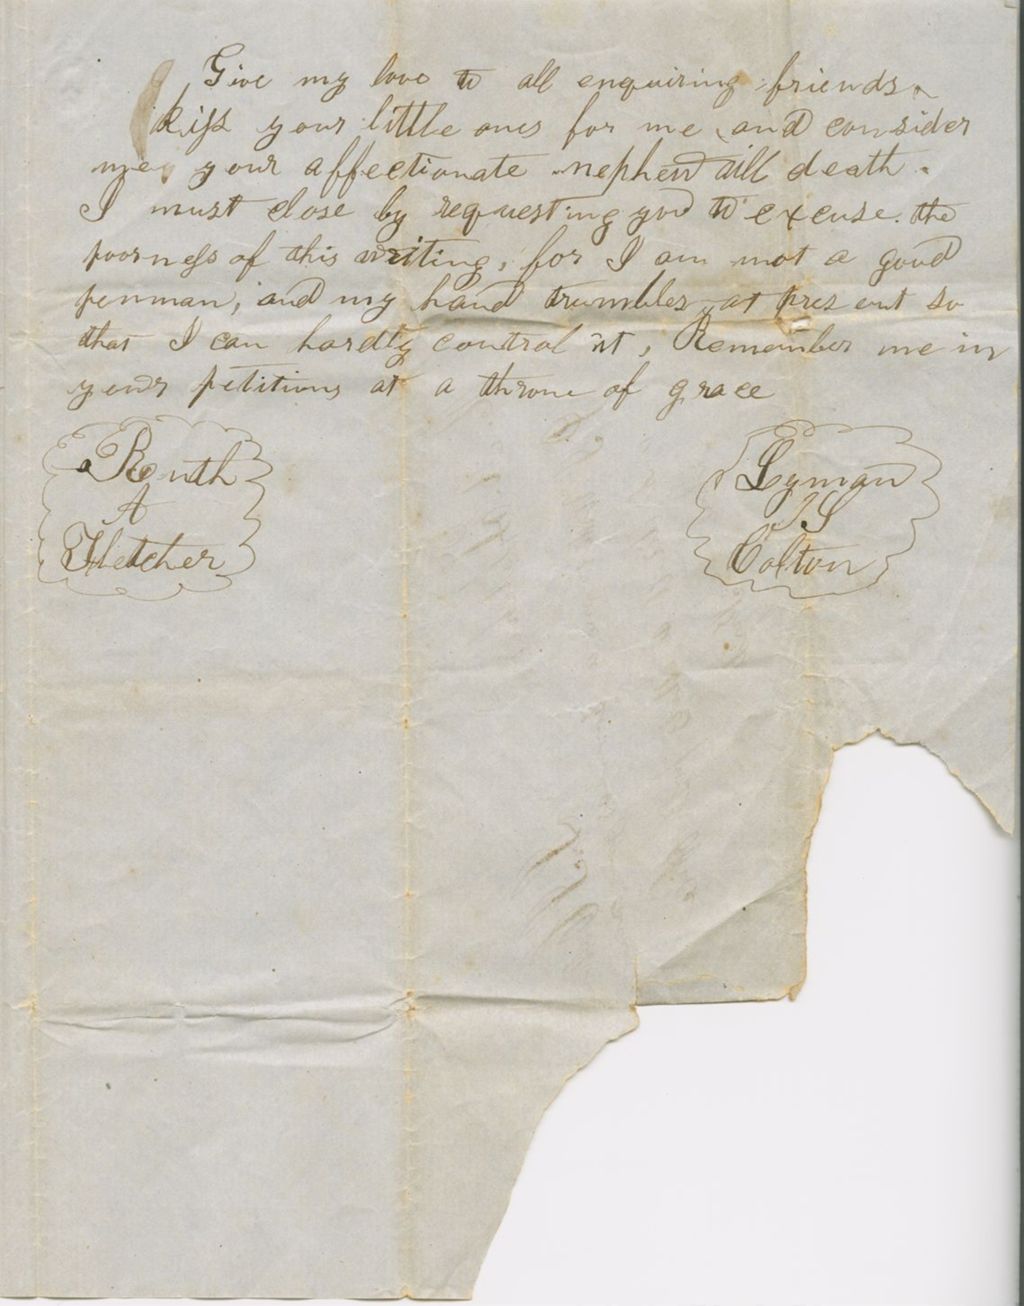 Give my love to all enquiring friends.
Kiss your little ones for me, and consider
me, your affectionate nephew till death.
I must close by requesting you to excuse the
poorness of this writing, for I am not a good
penman, and my hand trumbles at present so
that I can hardly control it, Remember me in
your petitions at a throne of grace
Ruth
A
Fletcher
Lyman
Colton